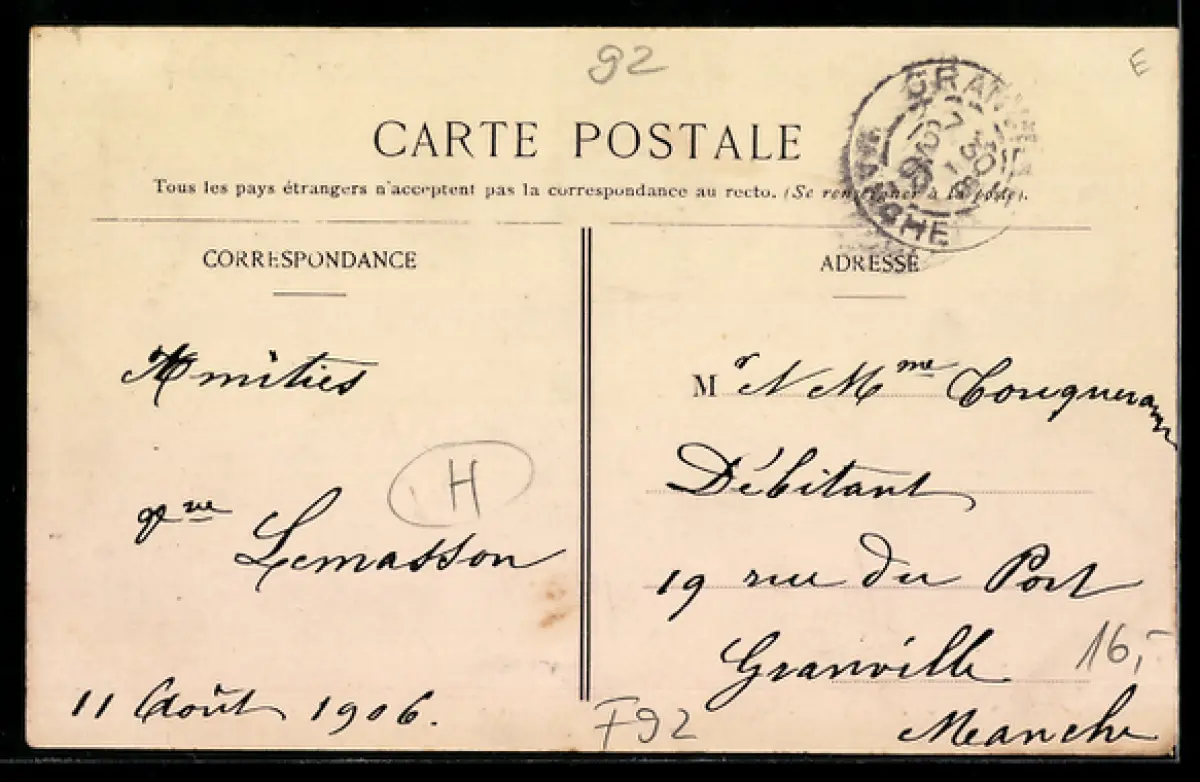 92
E
CARTE POSTALE
Tous les pays étrangers n'acceptent pas la correspondance au recto. (Se renseigner à la poste).
GRANVILLE
MANCHE
7 30
CORRESPONDANCE
Amitiés
H
Lemasson
11 Août 1906.
ADRESSE
Mr & Mme
Débitant
19 rue du Port
Granville
Manche
16,-
F92